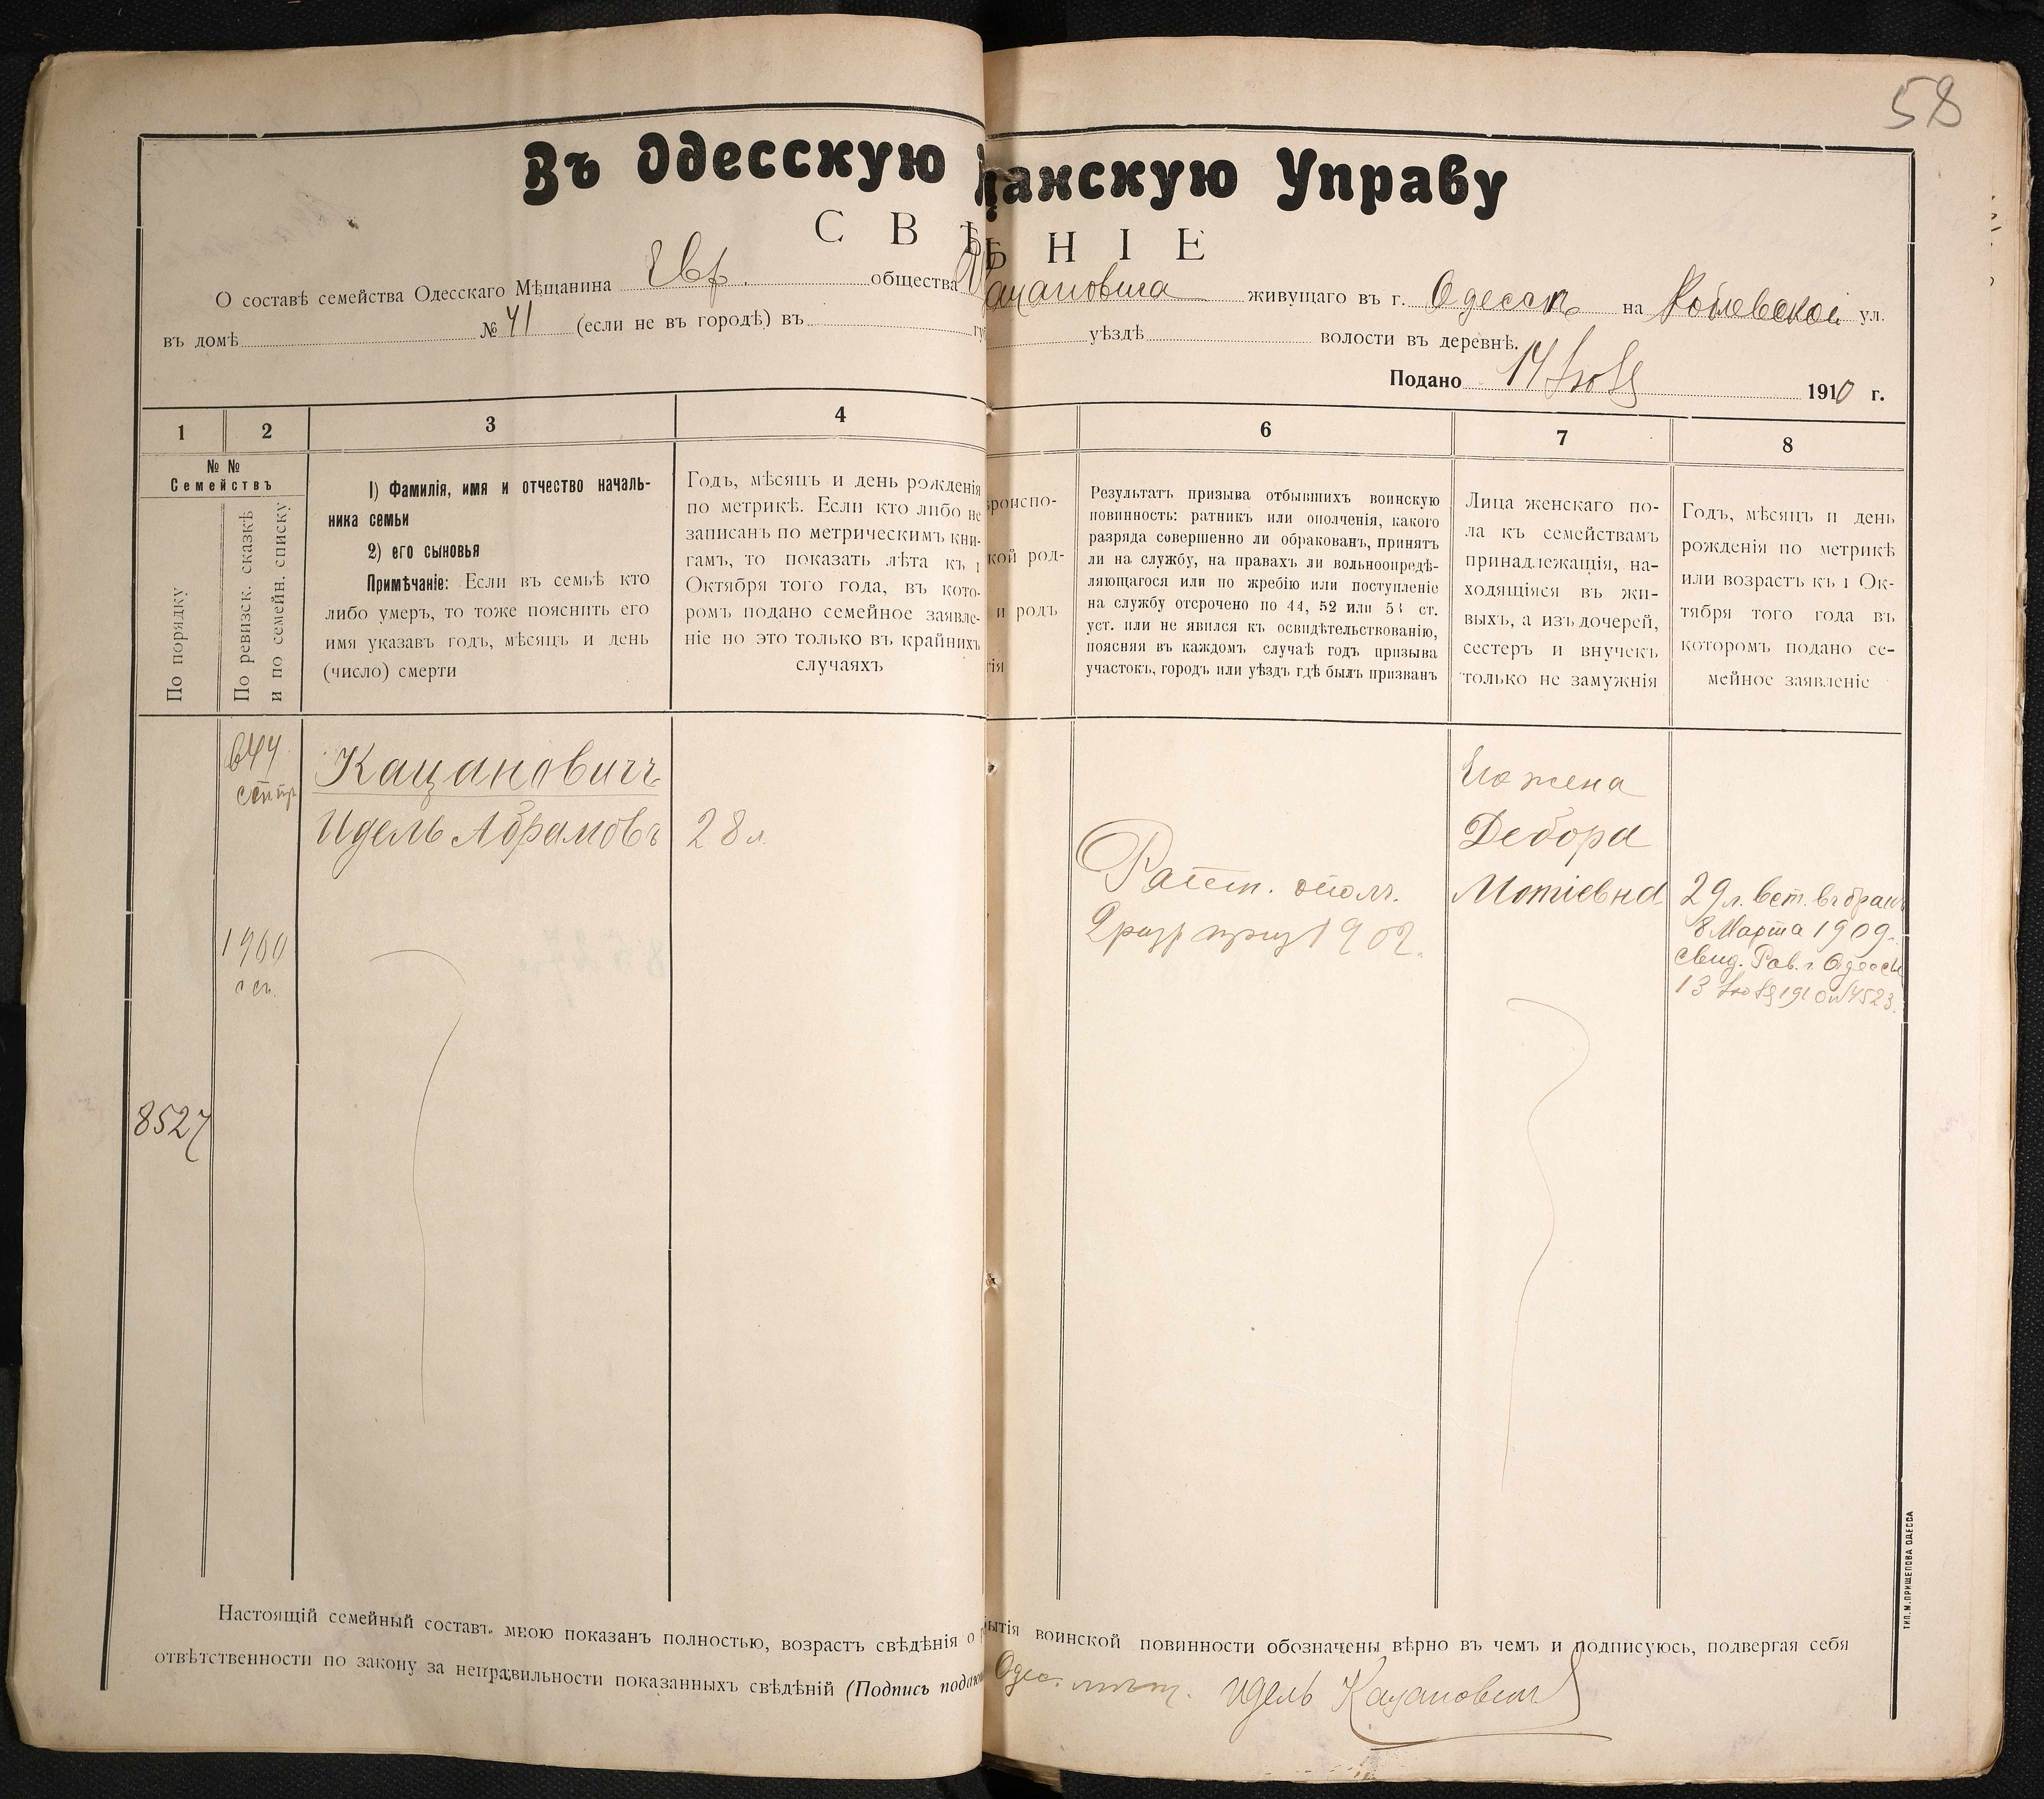 58
Въ Одесскую щанскую Управу
СВѢ НІЕ
О составѣ семейства Одесскаго Мѣщанина Евр. общества ацановича живущаго въ г. Одессѣ на Коблевской ул.
въ домѣ № 41 (если не въ городѣ) въ уѣздѣ волости въ деревнѣ.
Подано 14 Іюля 1910 г.
1 2 3 4 6 7 8
№ №
Семействъ
По порядку
По ревизск. сказкѣ
и по семейн. списку
1) Фамилія, имя и отчество началь-
ника семьи
2) его сыновья
Примѣчаніе: Если въ семьѣ кто
либо умеръ, то тоже пояснить его
имя указавъ годъ, мѣсяцъ и день
(число) смерти
Годъ, мѣсяцъ и день рожденія
по метрикѣ. Если кто либо не
записанъ по метрическимъ кни-
гамъ, то показать лѣта къ 1
Октября того года, въ кото-
ромъ подано семейное заявле-
ніе но это только въ крайнихъ
случаяхъ
роиспо-
кой род-
и родъ
гія
Результатъ призыва отбывшихъ воинскую
повинность: ратникъ или ополченія, какого
разряда совершенно ли обракованъ, принятъ
ли на службу, на правахъ ли вольноопредѣ-
ляющагося или по жребію или поступленіе
на службу отсрочено по 44, 52 или 53 ст.
уст. или не явился къ освидѣтельствованію,
поясняя въ каждомъ случаѣ годъ призыва
участокъ, городъ или уѣздъ гдѣ былъ призванъ
Лица женскаго по-
ла къ семействамъ
принадлежащія, на-
ходящіяся въ жи-
выхъ, а изъ дочерей,
сестеръ и внучекъ
только не замужнія
Годъ, мѣсяцъ и день
рожденія по метрикѣ
или возрастъ къ 1 Ок-
тября того года въ
которомъ подано се-
мейное заявленіе
644
Кацановичъ
Идель Абрамовъ
28 л.
1900
сп.
8527
Ратн. опол.
2 разр приз 1902.
Его жена
Дебора
Мотіевна
29 л. вст. въ бракъ
8 Марта 1909.
свид. Рав. г. Одессы
13 Іюля 1910 № 4523.
Настоящій семейный составъ мною показанъ полностью, возрастъ свѣдѣнія о бытія воинской повинности обозначены вѣрно въ чемъ и подписуюсь, подвергая себя
отвѣтственности по закону за неправильности показанныхъ свѣдѣній (Подпись подаю Одес. мѣщ. Идель Кацановичъ
ТИП. М. ПРИЩЕПОВА ОДЕССА